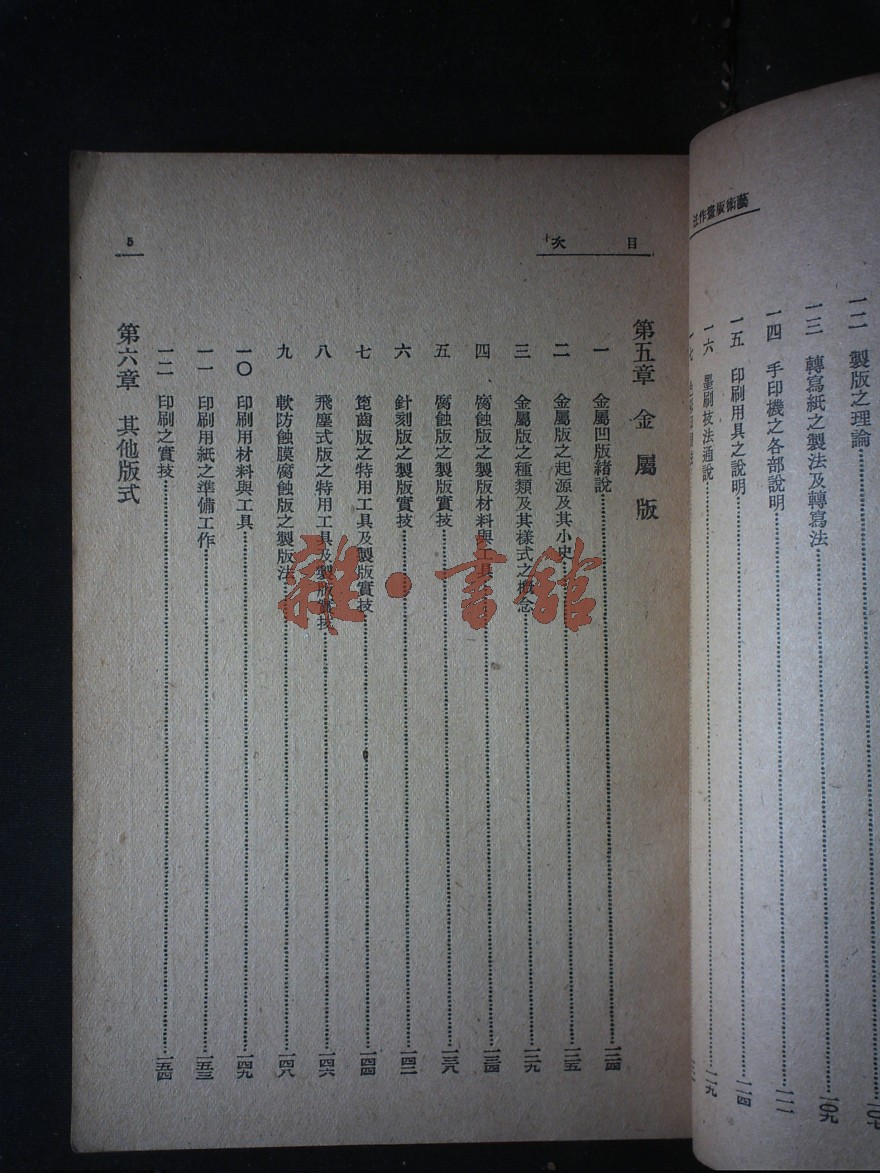 藝術版畫作法
一二 製版之理論 一〇七
一三 轉寫紙之製法及轉寫法 一〇九
一四 手印機之各部說明 一一一
一五 印刷用具之說明 一一四
一六 墨刷技法通說 一一九
一七
目次
5
第五章 金屬版
一 金屬凹版緒說 一二四
二 金屬版之起源及其小史 一二五
三 金屬版之種類及其樣式之概念 一二九
四 腐蝕版之製版材料與工具 一三四
五 腐蝕版之製版實技 一三八
六 針刻版之製版實技 一四二
七 篦齒版之特用工具及製版實技 一四四
八 飛塵式版之特用工具及製版實技 一四六
九 軟防蝕膜腐蝕版之製版法 一四八
一〇 印刷用材料與工具 一四九
一一 印刷用紙之準備工作 一五三
一二 印刷之實技 一五四
第六章 其他版式
雜·書館